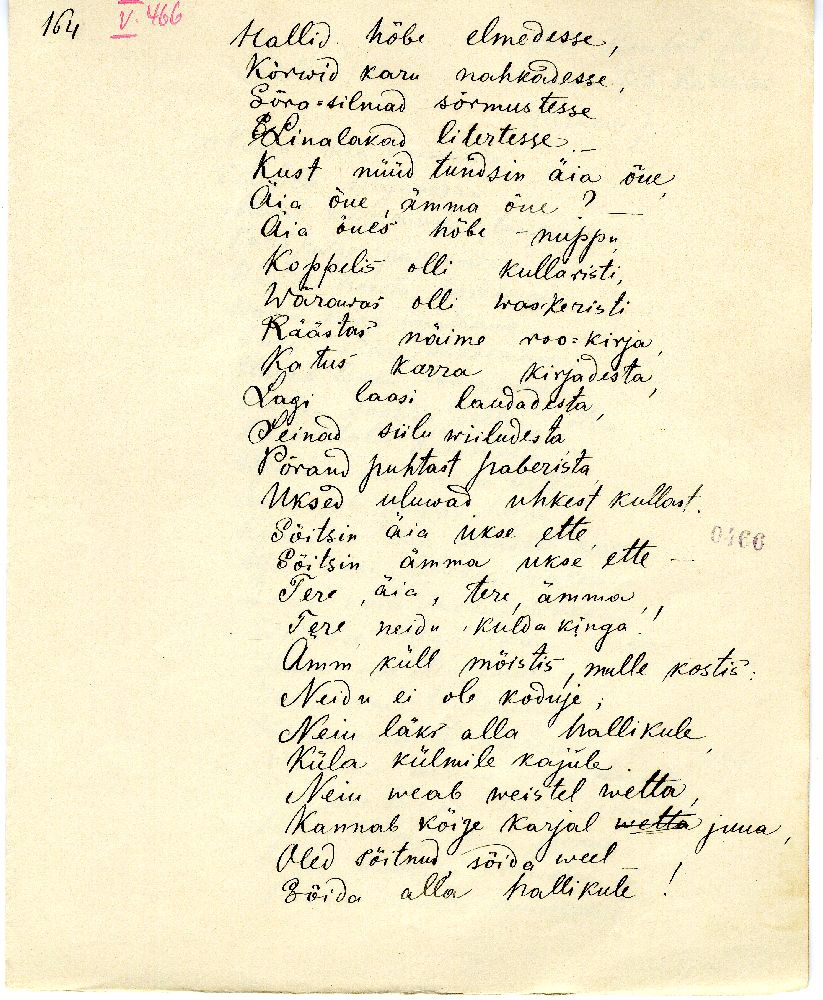 164 V. 466
Hallid hõbe elmedesse,
Kõrwid karu nahkadesse,
Sõra-silmad sõrmustesse
Linalakad litertesse. _
Kust nüüd tundsin äia õue,
Äia õue, ämma õue ? _
Äia õues hõbe-nuppu,
Koppelis olli kullaristi,
Wärawas olli waskeristi
Räästas näime roo=kirja,
Katus karra kirjadesta,
Lagi laasi laudadesta,
Seinad siilu wiiludesta
Põrand puhtast paberista,
Uksed uluwad uhkest kullast.
Sõitsin äia ukse ette,
0466
Sõitsin ämma ukse ette _
Tere, äia, tere, ämma,
Tere neidu, kulda kinga!
Ämm küll mõistis, mulle kostis:
Neidu ei ole koduje;
Neiu läks alla hallikule,
Küla külmile kajule.
Neiu weab weistel wetta,
Kannab kõige karjal wetta juua,
Oled sõitnud sõida weel
Sõida alla hallikule !